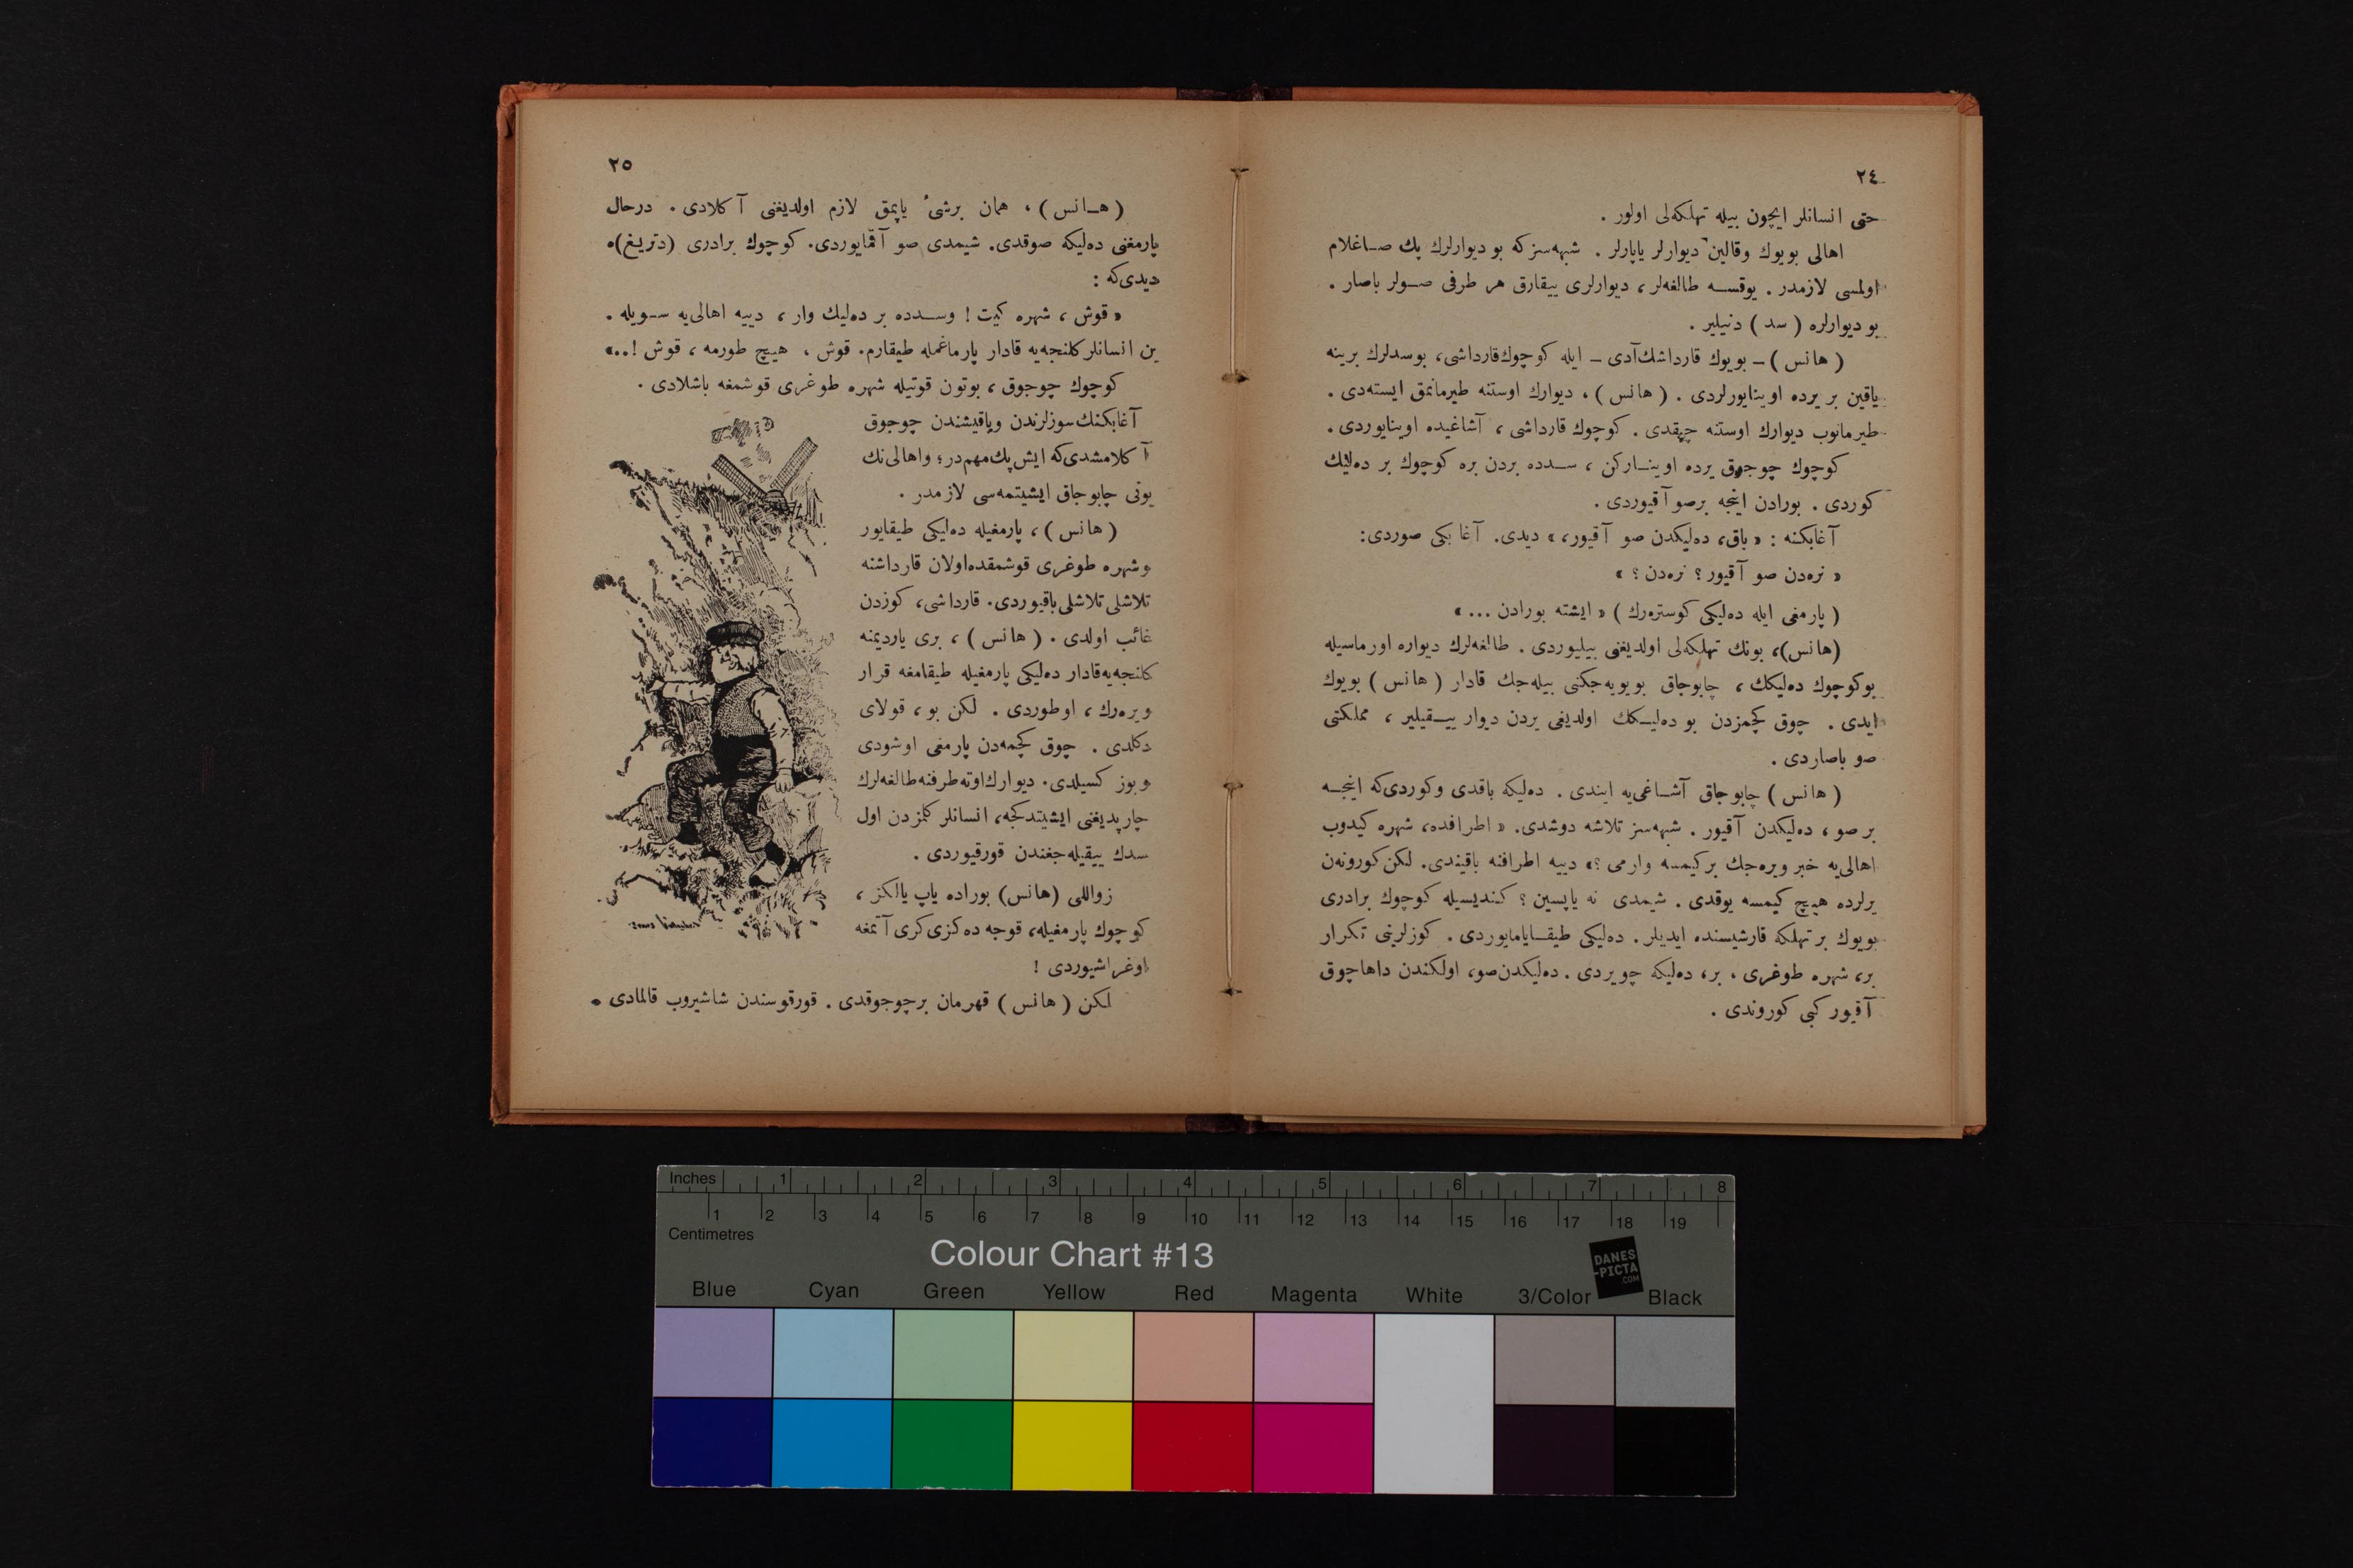 ٢٤
حتى انسانلر ایچون بیله تهلكه‌لی اولور .
اهالی بویوك وقالین دیوارلر یاپارلر . شبهه‌سزكه بو دیوارلرك پك صاغلام
اولمسی لازمدر . یوقسه طالغه‌لر، دیوارلری ییقارق هر طرفی صولر باصار .
بو دیوارلره ( سد ) دنیلیر .
( هانس ) – بویوك قارداشك آدی – ایله كوچوك قارداشی، بوسدلرك برینه
یاقین بر یرده اوینایورلردی . ( هانس ) ، دیوارك اوستنه طیرمانمق ایسته‌دی .
طیرمانوب دیوارك اوستنه چیقدی . كوچوك قارداشی ، آشاغیده اوینایوردی .
كوچوك چوجوق یرده اویناركن ، سدده بردن بره كوچوك بر ده‌لیك
كوردی . بورادن اینجه برصو آقیوردی .
آغابكنه : « باق، ده‌لیكدن صو آقیور، » دیدی. آغا بكی صوردی:
« نره‌دن صو آقیور ؟ نره‌دن ؟ »
( پارمغی ایله ده‌لیكی كوستره‌رك ) « ایشته بورادن ... »
(هانس)، بونك تهلكه‌لی اولدیغنی بیلیوردی . طالغه‌لرك دیواره اورماسیله
بوكوچوك ده‌لیكك ، چابوجاق بویویه‌جكنی بیله‌جك قادار ( هانس ) بویوك
ایدی . چوق كچمزدن بو ده‌لیكك اولدیغی یردن دیوار ییقیلیر ، مملكتی
صو باصاردی .
( هانس ) چابوجاق آشاغی‌یه ایندی . ده‌لیكه باقدی وكوردی‌كه اینجه
بر صو ، ده‌لیكدن آقیور . شبهه‌سز تلاشه دوشدی. « اطرافده، شهره كیدوب
اهالی‌یه خبر ویره‌جك بركیمسه وارمی ؟» دییه اطرافنه باقیندی. لكن كورونه‌ن
یرلرده هیچ كیمسه یوقدی . شیمدی نه یاپسین ؟ كندیسیله كوچوك برادری
بویوك بر تهلكه قارشیسنده ایدیلر. ده‌لیكی طیقایامایوردی . كوزلرینی تكرار
بر، شهره طوغری ، بر، ده‌لیكه چویردی . ده‌لیكدن صو، اولكندن داها چوق
آقیور كبی كوروندی .
٢٥
( هانس ) ، همان برشیء یاپمق لازم اولدیغنی آكلادی . درحال
پارمغنی ده‌لیكه صوقدی. شیمدی صو آقمایوردی. كوچوك برادری (دتریغ)ه
دیدی‌كه :
« قوش ، شهره كیت ! وسدده بر ده‌لیك وار ، دییه اهالی‌یه سویله .
بن انسانلر كلنجه‌یه قادار پارماغمله طیقارم. قوش ، هیچ طورمه ، قوش !..»
كوچوك چوجوق ، بوتون قوتیله شهره طوغری قوشمغه باشلادی .
آغابكنك سوزلرندن وباقیشندن چوجوق
آكلامشدی‌كه ایش پك مهم‌در؛ واهالی‌نك
بونی چابوجاق ایشیتمه‌سی لازمدر .
( هانس ) ، پارمغیله ده‌لیكی طیقایور
وشهره طوغری قوشمقده اولان قارداشنه
تلاشلی تلاشلی باقیوردی. قارداشی، كوزدن
غائب اولدی . ( هانس ) ، بری یاردیمنه
كلنجه‌یه قادار ده‌لیكی پارمغیله طیقامغه قرار
ویره‌رك ، اوطوردی . لكن بو ، قولای
دكلدی . چوق كچمه‌دن پارمغی اوشودی
وبوز كسیلدی. دیوارك اوته طرفنه طالغه‌لرك
چارپدیغنی ایشیتدكجه، انسانلر كلمزدن اول
سدك ییقیله‌جغندن قورقیوردی .
زواللی (هانس) بوراده یاپ یالكز ،
كوچوك پارمغیله، قوجه ده‌كزی كری آتمغه
اوغراشیوردی !
لكن ( هانس ) قهرمان برچوجوقدی . قورقوسندن شاشیروب قالمادی .
Inches 1 2 3 4 5 6 7 8
1 2 3 4 5 6 7 8 9 10 11 12 13 14 15 16 17 18 19
Centimetres
Colour Chart #13
DANES
-PICTA
.COM
Blue Cyan Green Yellow Red Magenta White 3/Color Black